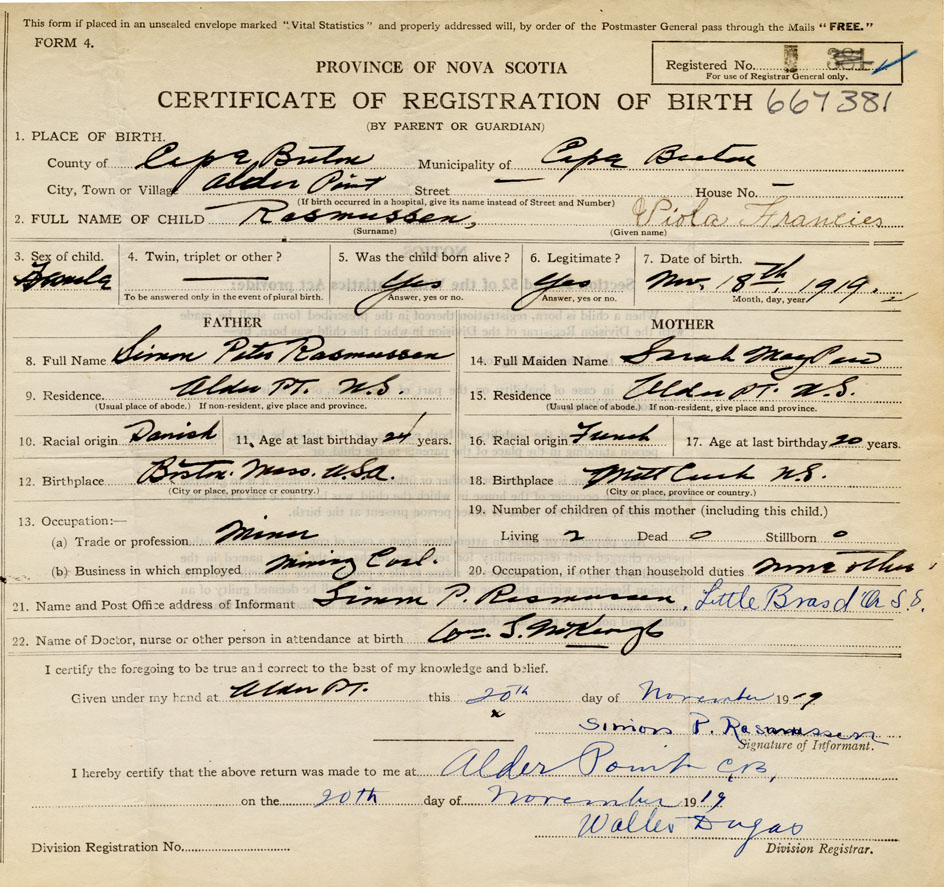 This form if placed in an unsealed envelope marked "Vital Statistics" and properly addressed will, by order of the Postmaster General pass through the Mails "FREE."
FORM 4.
Registered No.
For use of Registrar General only.
PROVINCE OF NOVA SCOTIA
CERTIFICATE OF REGISTRATION OF BIRTH 667381
(BY PARENT OR GUARDIAN)
1. PLACE OF BIRTH.
County of Cape Breton Municipality of Cape Breton
City, Town or Village Alder Point Street — House No. —
(If birth occurred in a hospital, give its name instead of Street and Number)
2. FULL NAME OF CHILD Rasmussen, Viola Francies
(Surname) (Given name)
3. Sex of child. 4. Twin, triplet or other? 5. Was the child born alive? 6. Legitimate? 7. Date of birth.
Female — Yes Yes Nov. 18th, 1919.
To be answered only in the event of plural birth. Answer, yes or no. Answer, yes or no. Month, day, year
FATHER MOTHER
8. Full Name Simon Peter Rasmussen 14. Full Maiden Name Sarah May
9. Residence. Alder Pt. N.S. 15. Residence Alder Pt. N.S.
(Usual place of abode.) If non-resident, give place and province. (Usual place of abode.) If non-resident, give place and province.
10. Racial origin Danish 11. Age at last birthday 24 years. 16. Racial origin French 17. Age at last birthday 20 years.
12. Birthplace Boston. Mass. U.S.A. 18. Birthplace Mill Creek N.S.
(City or place, province or country.) (City or place, province or country.)
13. Occupation:— 19. Number of children of this mother (including this child.)
(a) Trade or profession Miner Living 2 Dead 0 Stillborn 0
(b) Business in which employed Mining Coal. 20. Occupation, if other than household duties none other
21. Name and Post Office address of Informant Simon P. Rasmussen, Little Bras d'Or S.S.
22. Name of Doctor, nurse or other person in attendance at birth Wm. S. McKeough
I certify the foregoing to be true and correct to the best of my knowledge and belief.
Given under my hand at Alder Pt. this 20th day of November 1919
x
Simon P. Rasmussen
Signature of Informant.
I hereby certify that the above return was made to me at Alder Point C.B.,
on the 20th day of November 1919
Walter Dugas
Division Registration No. Division Registrar.